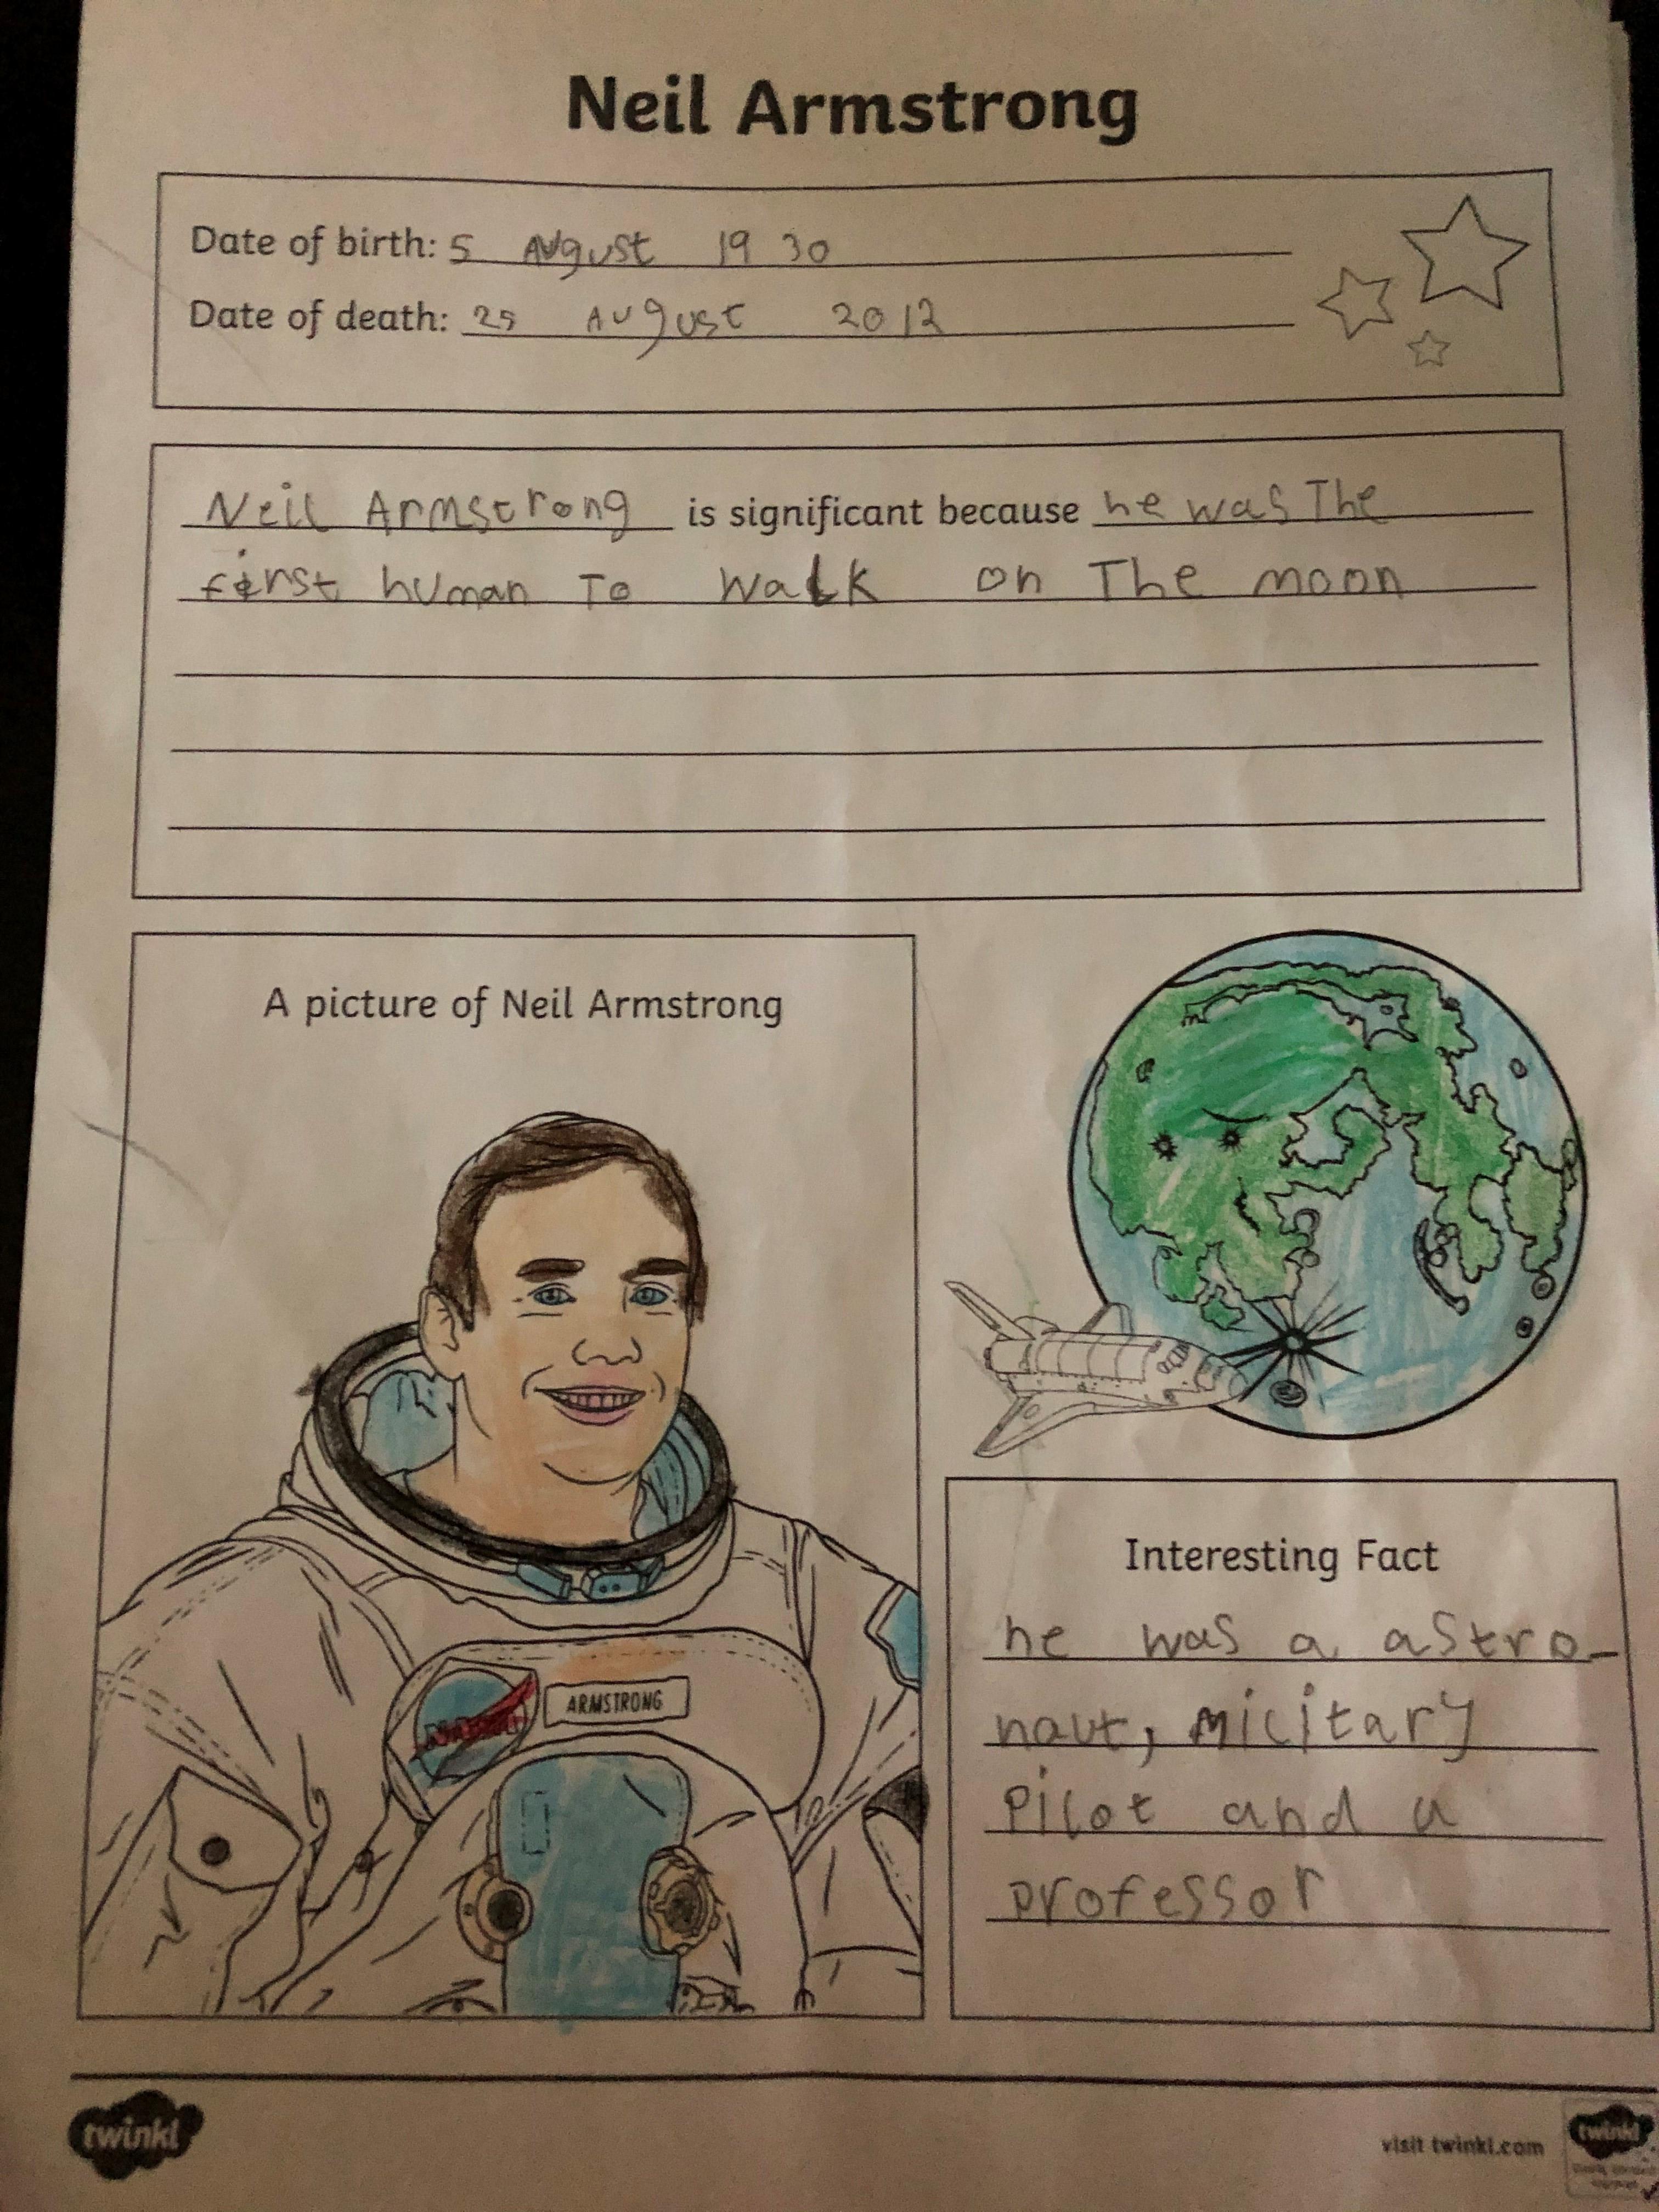 Neil Armstrong
Date of birth: 5 August 19 30
Date of death: 25 August 2012
Neil Armstrong is significant because he was The
first human To walk on The moon
A picture of Neil Armstrong
ARMSTRONG
Interesting Fact
he was a astro-
naut, military
pilot and a
professor
twinkl
visit twinkl.com
twinkl